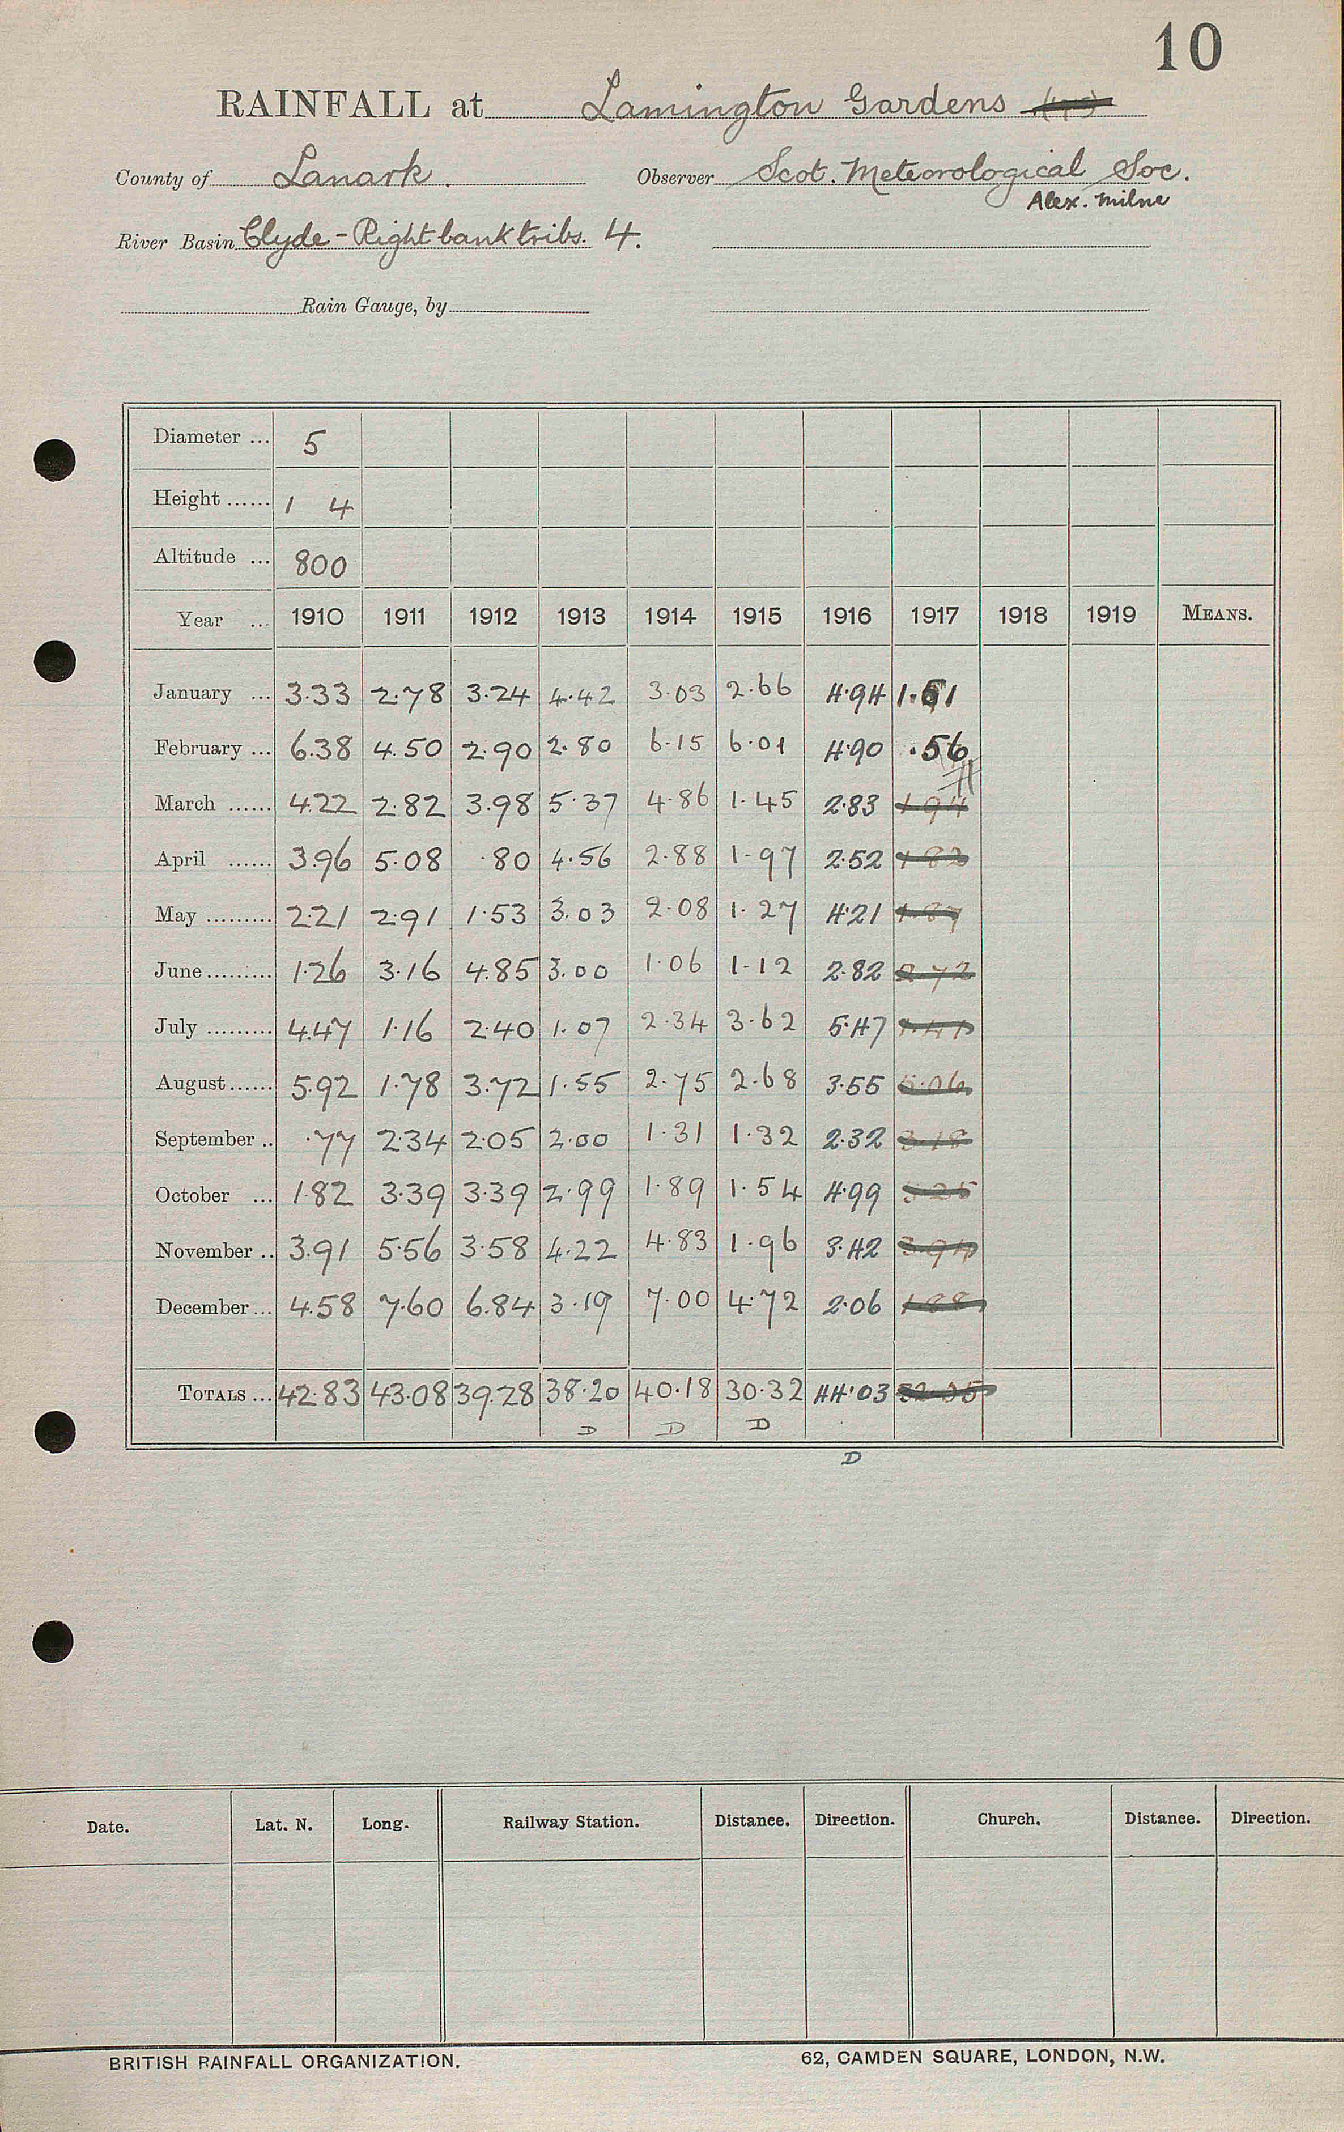 10
RAINFALL at Lamington Gardens
County of Lanark. Observer Scot. Meteorological Soc.
Alex. Milne
River Basin Clyde - Right bank tribs. 4.
Rain Gauge, by
Diameter ... 5
Height ...... 1 4
Altitude ... 800
Year ... 1910 1911 1912 1913 1914 1915 1916 1917 1918 1919 MEANS.
January ... 3.33 2.78 3.24 4.42 3.03 2.66 4.94 1.61
February ... 6.38 4.50 2.90 2.80 6.15 6.01 4.90 .56
March ...... 4.22 2.82 3.98 5.37 4.86 1.45 2.83 1.94
April ...... 3.96 5.08 .80 4.56 2.88 1.97 2.52 1.82
May ......... 2.21 2.91 1.53 3.03 2.08 1.27 4.21 1.87
June ......... 1.26 3.16 4.85 3.00 1.06 1.12 2.82 2.72
July ......... 4.47 1.16 2.40 1.07 2.34 3.62 5.47
August ...... 5.92 1.78 3.72 1.55 2.75 2.68 3.55 5.06
September .. .77 2.34 2.05 2.00 1.31 1.32 2.32 3.18
October ... 1.82 3.39 3.39 2.99 1.89 1.54 4.99 5.25
November .. 3.91 5.56 3.58 4.22 4.83 1.96 3.42 3.94
December ... 4.58 7.60 6.84 3.19 7.00 4.72 2.06 1.88
TOTALS ... 42.83 43.08 39.28 38.20 40.18 30.32 44.03
D D D
D
Date. Lat. N. Long. Railway Station. Distance. Direction. Church. Distance. Direction.
BRITISH RAINFALL ORGANIZATION. 62, CAMDEN SQUARE, LONDON, N.W.